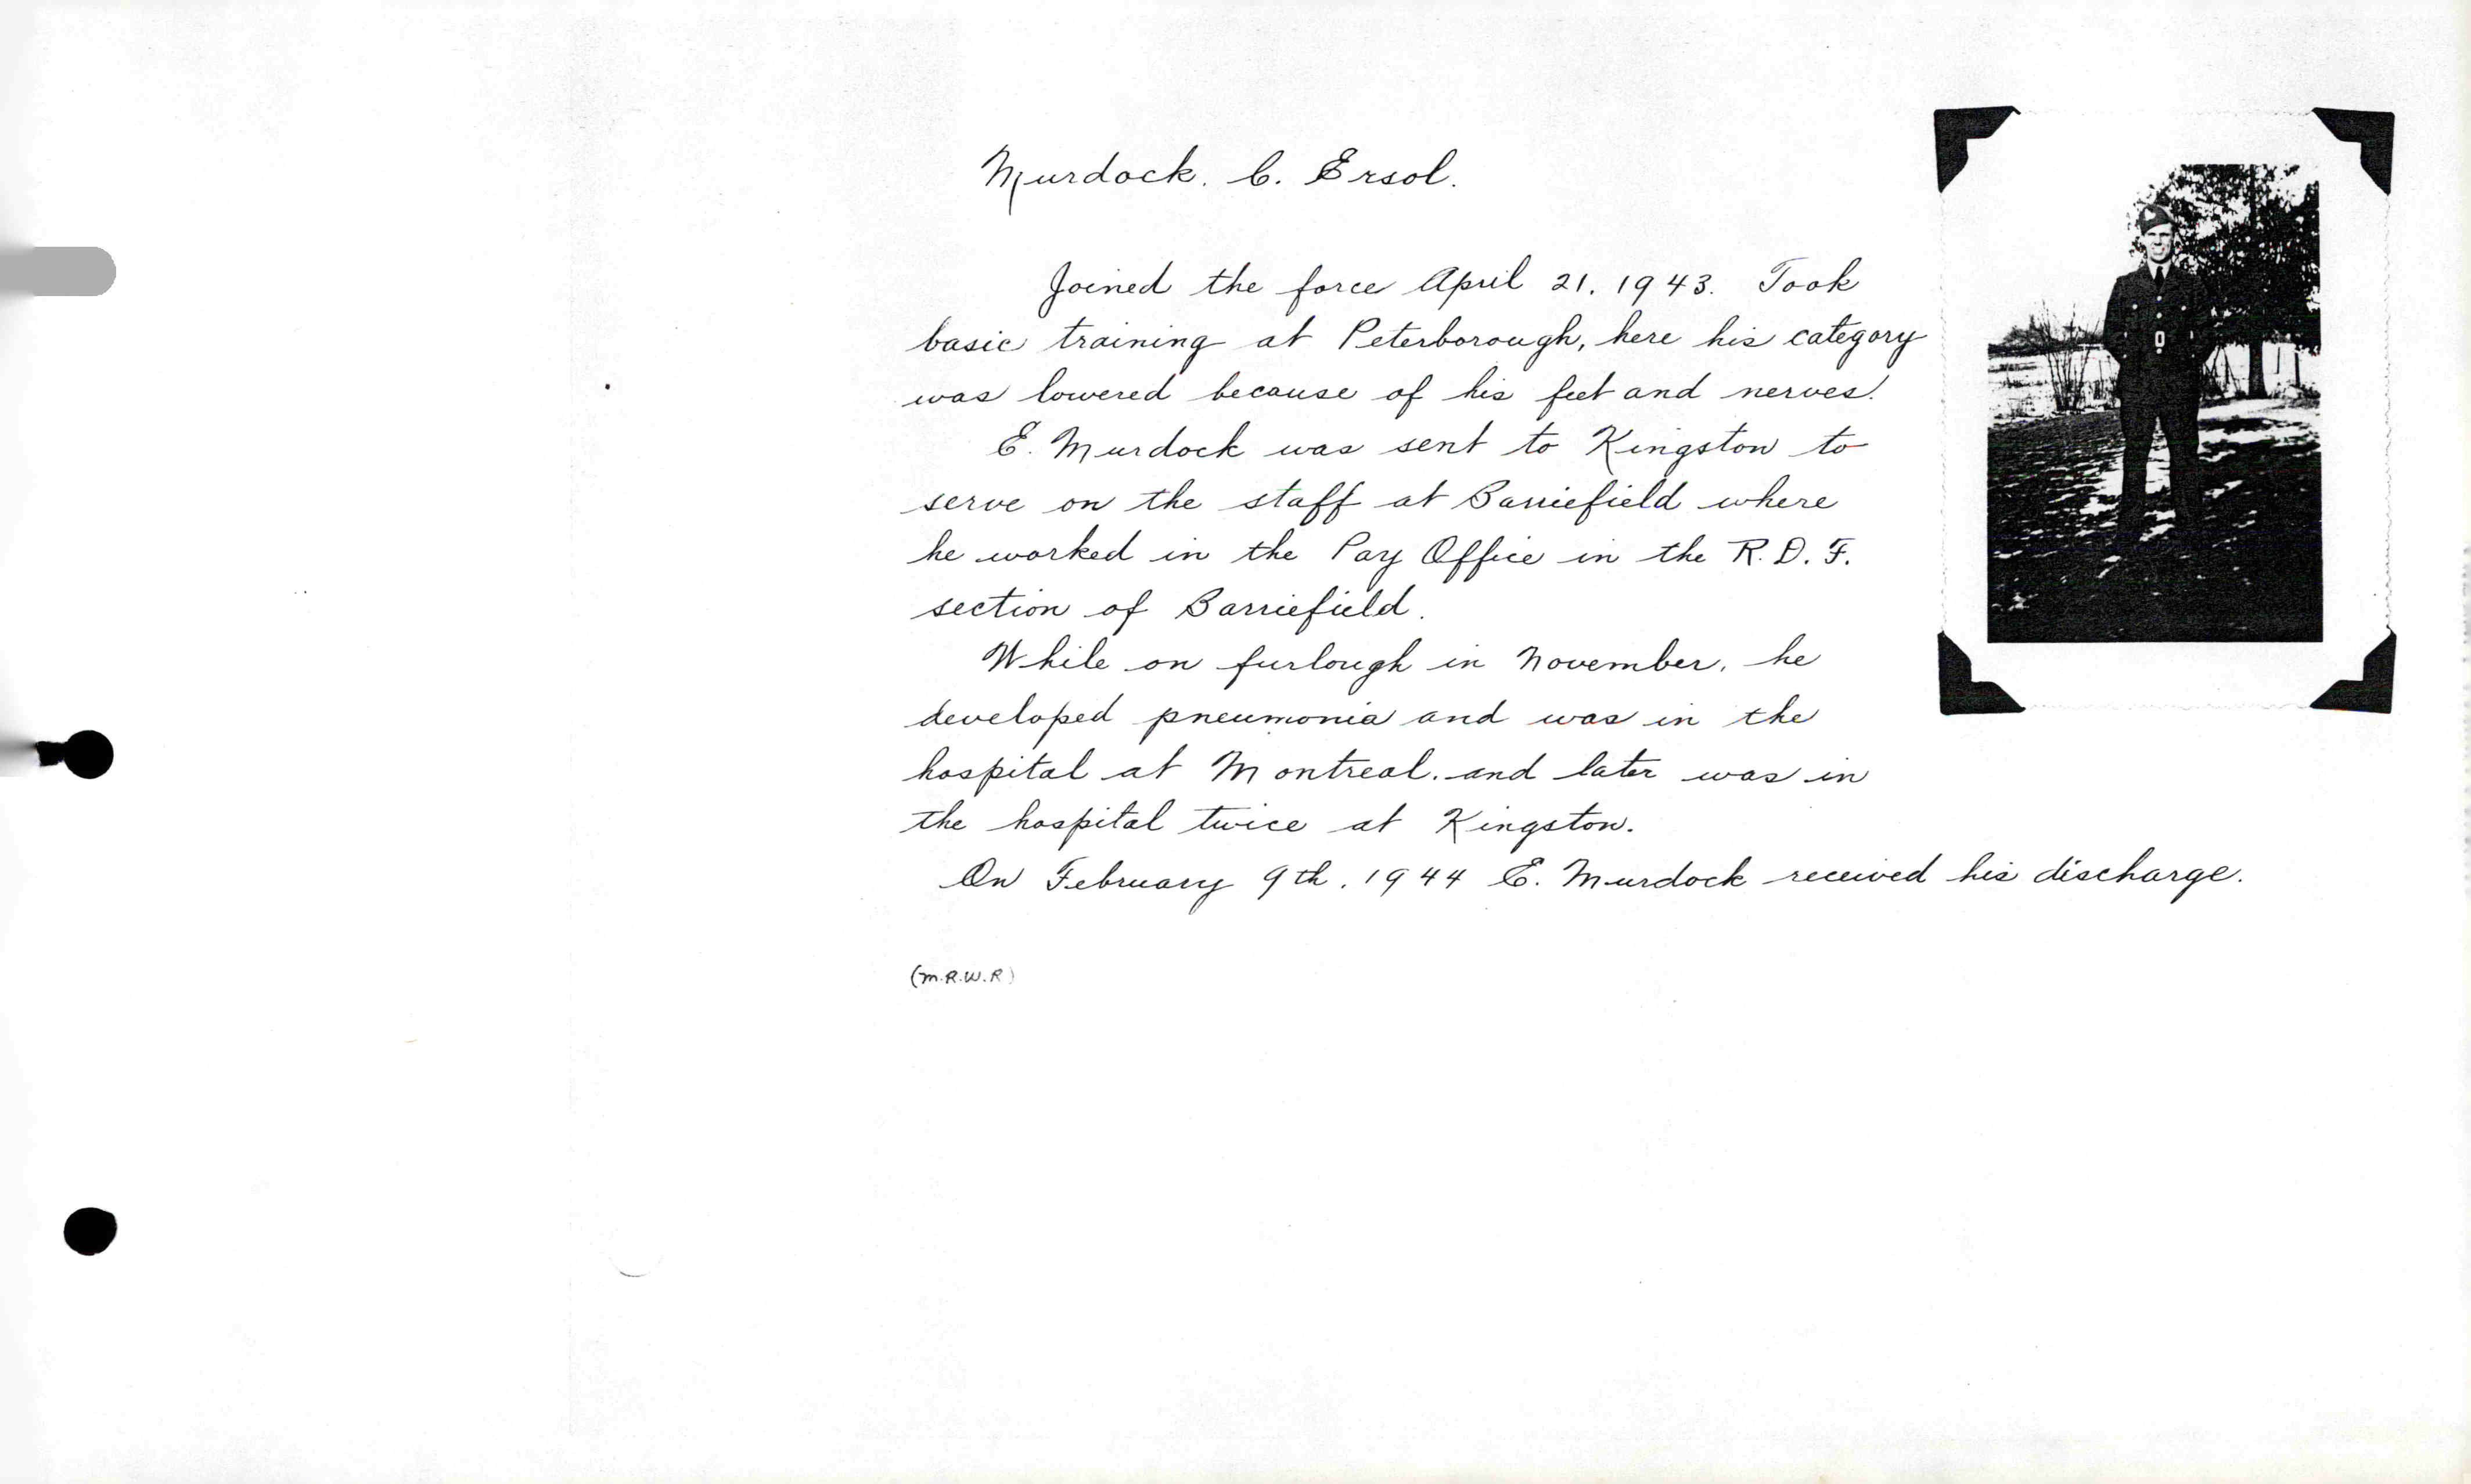 Murdock. C. Ersol.
Joined the force April 21. 1943. Took
basic training at Peterborough, here his category
was lowered because of his feet and nerves.
E. Murdock was sent to Kingston to
serve on the staff at Barriefield where
he worked in the Pay Office in the R. D. F.
section of Barriefield.
While on furlough in November, he
developed pneumonia and was in the
hospital at Montreal. and later was in
the hospital twice at Kingston.
On February 9th. 1944 E. Murdock received his discharge.
(M.R.W.R)